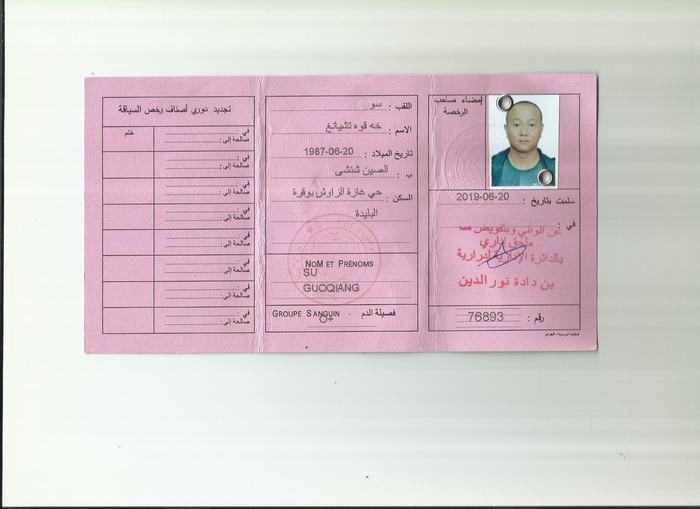 إمضاء صاحب
الرخصة
سلمت بتاريخ : 2019-06-20
في :
عن الوالي وبتفويض منه
ملحق إداري
بالدائرة الإدارية لدرارية
بن دادة نور الدين
رقم : 76893
اللقب : سو
الاسم : خه قوه تشيانغ
تاريخ الميلاد : 20-06-1987
ب : الصين شنشي
السكن : حي غازة الزاوش بوقرة
البليدة
NOM ET PRÉNOMS
SU
GUOQIANG
GROUPE SANGUIN - فصيلة الدم
O+
تجديد دوري أصناف رخص السياقة
ختم
في :
صالحة إلى :
في :
صالحة إلى :
في :
صالحة إلى :
في :
صالحة إلى :
في :
صالحة إلى :
في :
صالحة إلى :
في :
صالحة إلى :
في :
صالحة إلى :